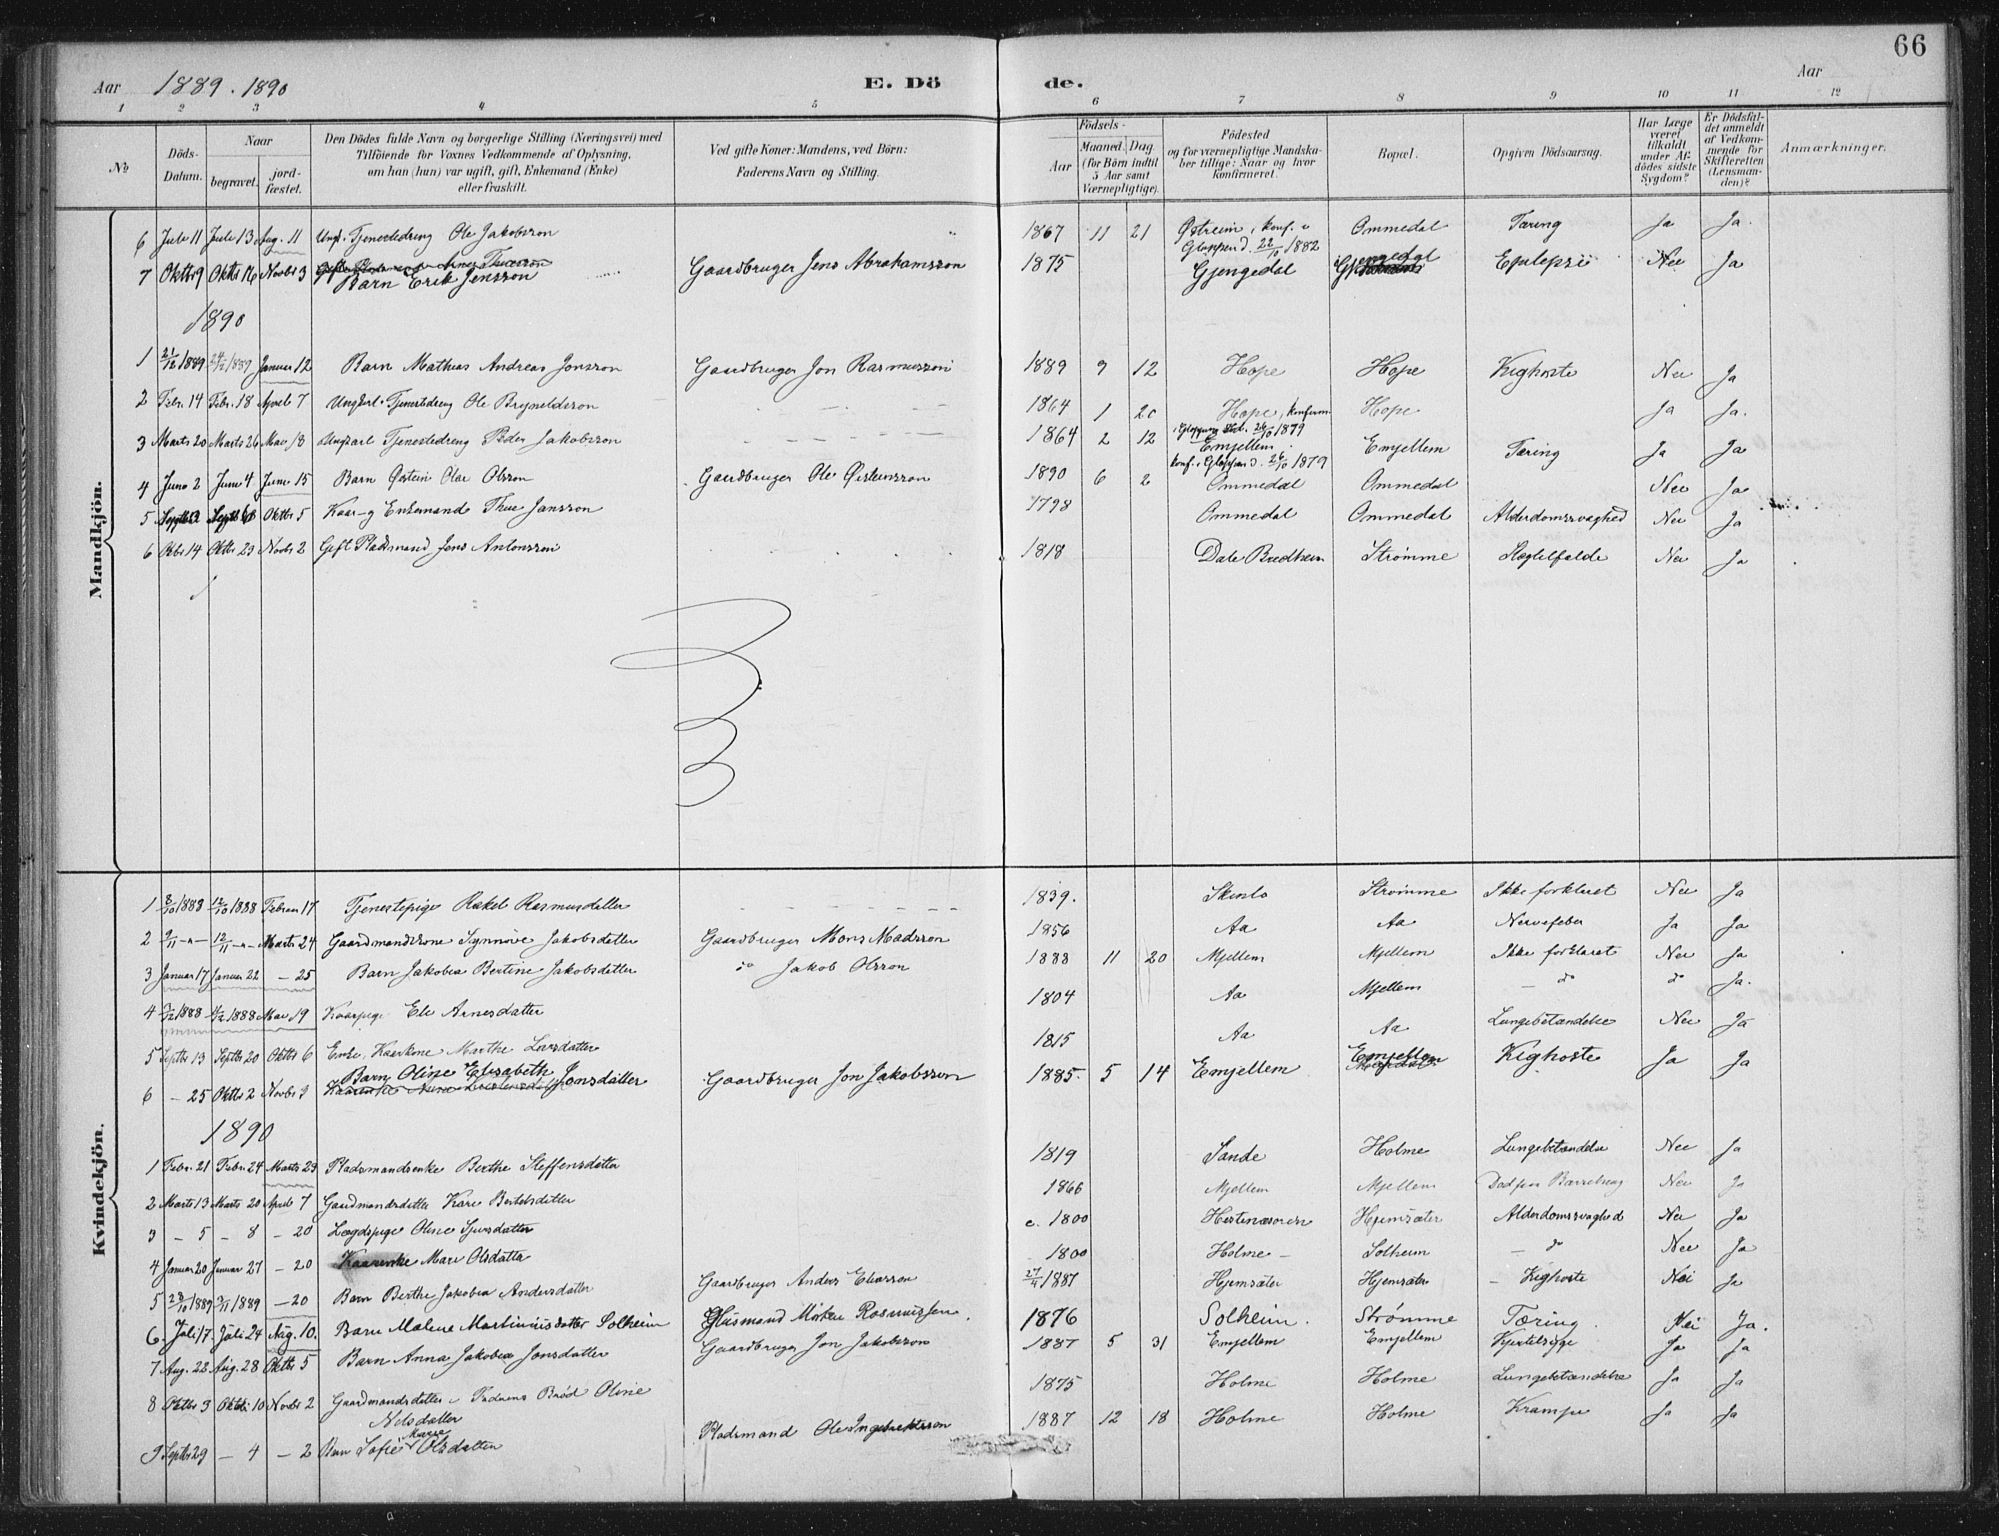 66
Aar 1889. 1890 E. Dö de. Aar
1 2 3 4 5 6 7 8 9 10 11 12
№
Döds-Datum.
Naar
begravet.
jord-fæstet.
Den Dödes fulde Navn og borgerlige Stilling (Næringsvei) med Tilföiende for Voxnes Vedkommende af Oplysning, om han (hun) var ugift, gift, Enkemand (Enke) eller fraskilt.
Ved gifte Koner: Mandens, ved Börn: Faderens Navn og Stilling.
Födsels-
Aar
Maaned. Dag
(for Börn indtil 5 Aar samt Værnepligtige).
Födested og for værnepligtige Mandskaber tillige: Naar og hvor konfirmeret.
Bopæl.
Opgiven Dödsaarsag.
Har Læge været tilkaldt under Afdödes sidste Sygdom?
Er Dödsfaldet anmeldt af Vedkommende for Skifteretten (Lensmanden)?
Anmærkninger.
Mandkjön.
6 Juli 11 Juli 13 Aug. 11 Ungk. Tjenestedreng Ole Jakobsson 1867 11 21 Østreim, konf. i Gloppen d. 22/10 1882 Ommedal Tæring Ja Ja.
7 Oktbr 9 Oktbr 16 Novbr 3 Barn Erik Jensson Gaardbruger Jens Abrahamsson 1875 Gjengedal Gjengedal Epilepsi Nei Ja
1890
1 21/12 1889 24/12 1889 Januar 12 Barn Mathias Andreas Jonsson Gaardbruger Jon Rasmusson 1889 9 12 Hope Hope Kighoste Nei Ja
2 Febr. 14 Febr. 18 April 7 Ungkarl Tjenestedreng Ole Brynildsson 1864 1 20 Hope, konfirm. i Gloppen d. 26/10 1879 Hope Ja Ja.
3 Marts 20 Marts 26 Mai 18 Ungkarl Tjenestedreng Peder Jakobsson 1864 2 12 Emjellem konf. i Gloppen d. 26/10 1879 Emjellem Tæring Ja Ja
4 Juno 2 June 4 June 15 Barn Østein Olai Olsson Gaardbruger Ole Østeinsson 1890 6 2 Ommedal Ommedal Nei Ja
5 Septbr Septbr Oktbr 5 Kaar- og Enkemand Thue Jansson 1798 Ommedal Ommedal Alderdomssvaghed Nei Ja
6 Oktbr 14 Oktbr 23 Novbr 2 Gift Pladsmand Jens Antonsson 1818 Dale Bredheim Strømme Slagtilfælde Nei Ja
Kvindekjön.
1 8/10 1888 12/10 1888 Februar 17 Tjenestepige Rakel Rasmusdatter 1839. Skinlo Strømme Ikke forklaret Nei Ja
2 9/11 -"- 12/11 -"- Marts 24 Gaardmandskone Synnøve Jakobsdatter Gaardbruger Mons Madsson 1856 Aa Aa Nervefeber Ja Ja
3 Januar 17 Januar 22 - 25 Barn Jakobea Bertine Jakobsdatter do Jakob Olsson 1888 11 20 Mjellem Mjellem Ikke forklaret Nei Ja
4 1888 1888 Mai 19 Kaarpige Eli Arnesdatter 1804 Aa Mjellem — do do Ja.
5 Septbr 13 Septbr 20 Oktbr 6 Enke, Kaarkone Marthe Larsdatter 1815 Aa Aa Lungebetændelse Nei Ja
6 - 25 Oktbr 2 Novbr 3 Barn Oline Elisabeth Jonsdatter Gaardbruger Jon Jakobsson 1885 5 14 Emjellem Emjellem Kighoste Ja Ja
1890
1 Febr. 21 Febr. 24 Marts 23 Pladsmandsenke Berthe Steffensdatter 1819 Sande Holme Lungebetændelse Nei Ja
2 Marts 13 Marts 20 April 7 Gaardmandsdatter Kari Bertelsdatter 1866 Mjellem Mjellem Nei Ja
3 - 5 - 8 - 20 Lægdspige Oline Sjursdatter c. 1800 Hestenæsøren Hjemsæter Alderdomssvaghed Nei Ja
4 Januar 20 Januar 27 - 20 Kaarenke Mari Olsdatter 1800 Holme Solheim — do Nei Ja
5 28/10 1889 3/11 1889 - 20 Barn Berthe Jakobea Andersdatter Gaardbruger Anders Eliasson 27/4 1887 Hjemsæter Hjemsæter Kighoste Nei Ja
6. Juli 17. Juli 24 Aug. 10. Barn Malene Martiniusdatter Solheim Husmand Morten Rasmussen. 1876 Solheim. Strømme Tæring. Nei Ja.
7 Aug. 22 Aug. 28 Oktbr 5 Barn Anna Jakobea Jonsdatter Gaardbruger Jon Jakobsson 1887 5 31 Emjellem Emjellem Kjertelsyge Ja Ja
8 Oktbr 3 Oktbr 10 Novbr 2 Gaardmandsdatter i Faderens Brød Oline Nilsdatter 1875 Holme Holme Lungebetændelse Ja Ja
9 Septbr 29 - 4 - 2 Barn Sofie Marie Olsdatter Pladsmand Ole Ingebrektsson 1887 12 18 Holme Holme Krampe Ja Ja